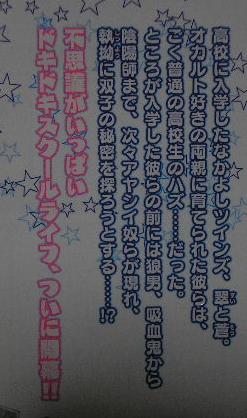 高校に入学したなかよしツインズ、翠と蒼。
オカルト好きの両親に育てられた彼らは、
ごく普通の高校生のハズ……だった。
ところが入学した彼らの前には狼男、吸血鬼から
陰陽師まで、次々アヤシイ奴らが現れ、
執拗に双子の秘密を探ろうとする……!?
不思議がいっぱい
ドキドキスクールライフ、ついに開幕!!